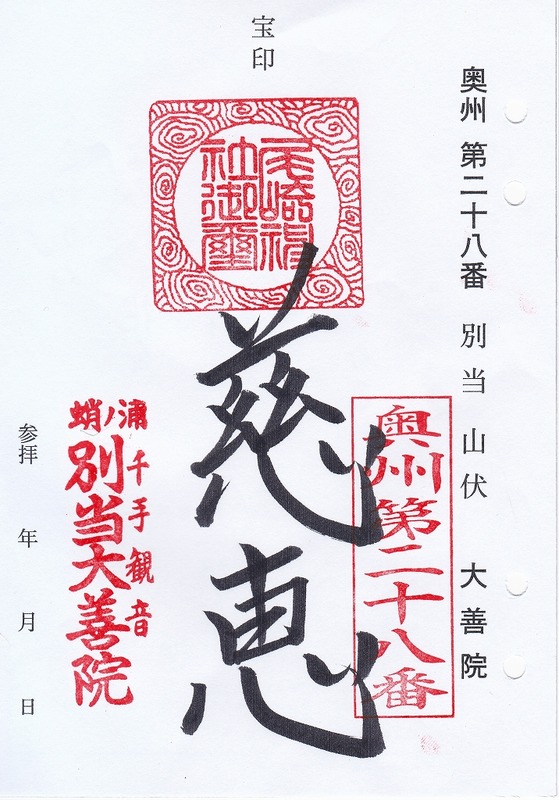 奥州 第二十八番 別当 山伏 大善院
宝印
尾崎神
社御璽
慈恵
奥州第二十八番
浦千手観音
蛸ノ
別当大善院
参拝 年 月 日